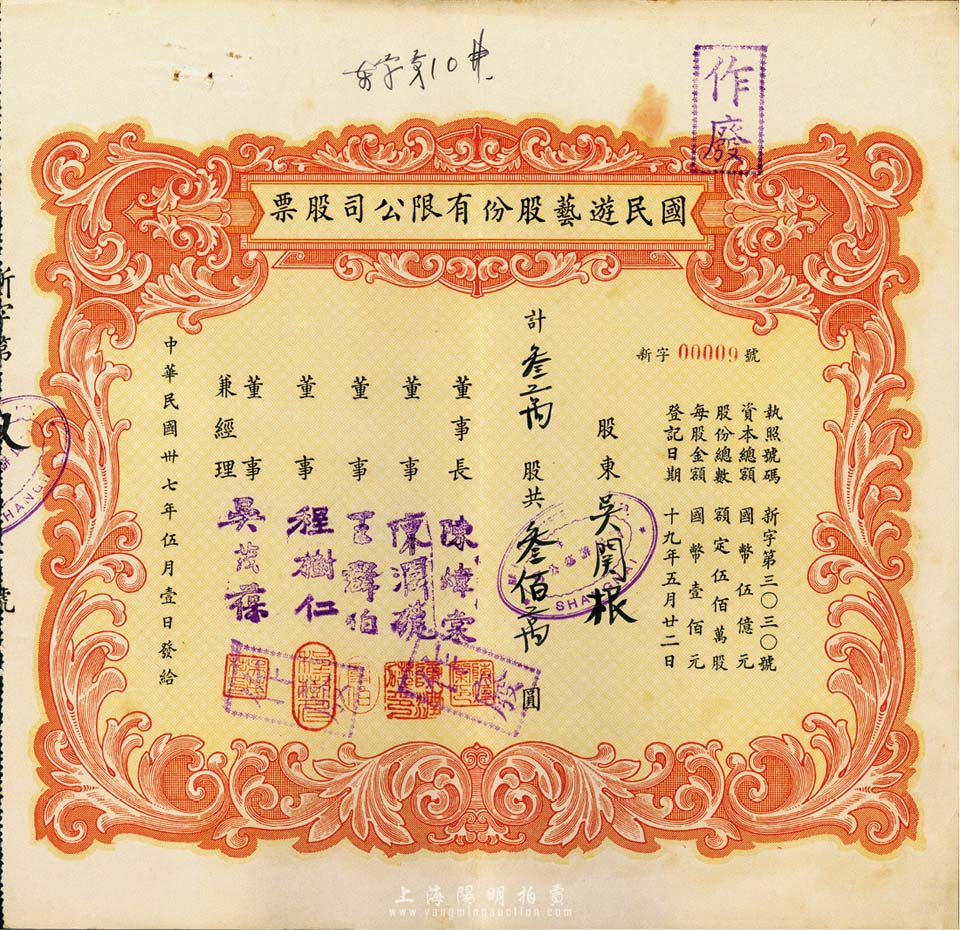 作廢
國民遊藝股份有限公司股票
新字 00009 號
執照號碼 新字第三〇三〇號
資本總額 國幣伍億元
股份總數 額定伍佰萬股
每股金額 國幣壹佰元
登記日期 十九年五月廿二日
股東 吳関根
計叁萬股共叁佰萬圓
SHANGHAI
董事長 陳煒棠
董事 陳潤琥
董事 王
董事 程樹仁
董事兼經理 吳茂葆
中華民國卅七年伍月壹日發給
作廢
新字第
號
SHANGHAI
上海陽明拍賣
www.yangmingauction.com